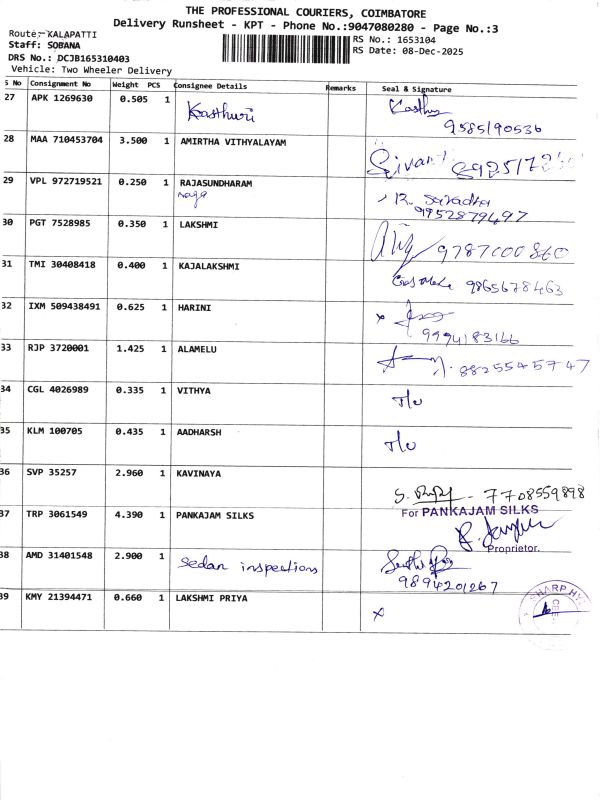 THE PROFESSIONAL COURIERS, COIMBATORE
Delivery Runsheet - KPT - Phone No.:9047080280 - Page No.:3
Route:- KALAPATTI
Staff: SOBANA
DRS No.: DCJB165310403
Vehicle: Two Wheeler Delivery
RS No.: 1653104
RS Date: 08-Dec-2025
S No Consignment No Weight PCS Consignee Details Remarks Seal & Signature
27 APK 1269630 0.505 1 Kasthuri
9585190536
28 MAA 710453704 3.500 1 AMIRTHA VITHYALAYAM
29 VPL 972719521 0.250 1 RAJASUNDHARAM
naga
9752879497
30 PGT 7528985 0.350 1 LAKSHMI
9787000860
31 TMI 30408418 0.400 1 KAJALAKSHMI
9865678463
32 IXM 509438491 0.625 1 HARINI
x
9994183166
33 RJP 3720001 1.425 1 ALAMELU
8825545747
34 CGL 4026989 0.335 1 VITHYA
35 KLM 100705 0.435 1 AADHARSH
36 SVP 35257 2.960 1 KAVINAYA
7708559898
37 TRP 3061549 4.390 1 PANKAJAM SILKS
For PANKAJAM SILKS
Proprietor.
38 AMD 31401548 2.900 1 Sedan inspections
9894201267
39 KMY 21394471 0.660 1 LAKSHMI PRIYA x
SHARP HY